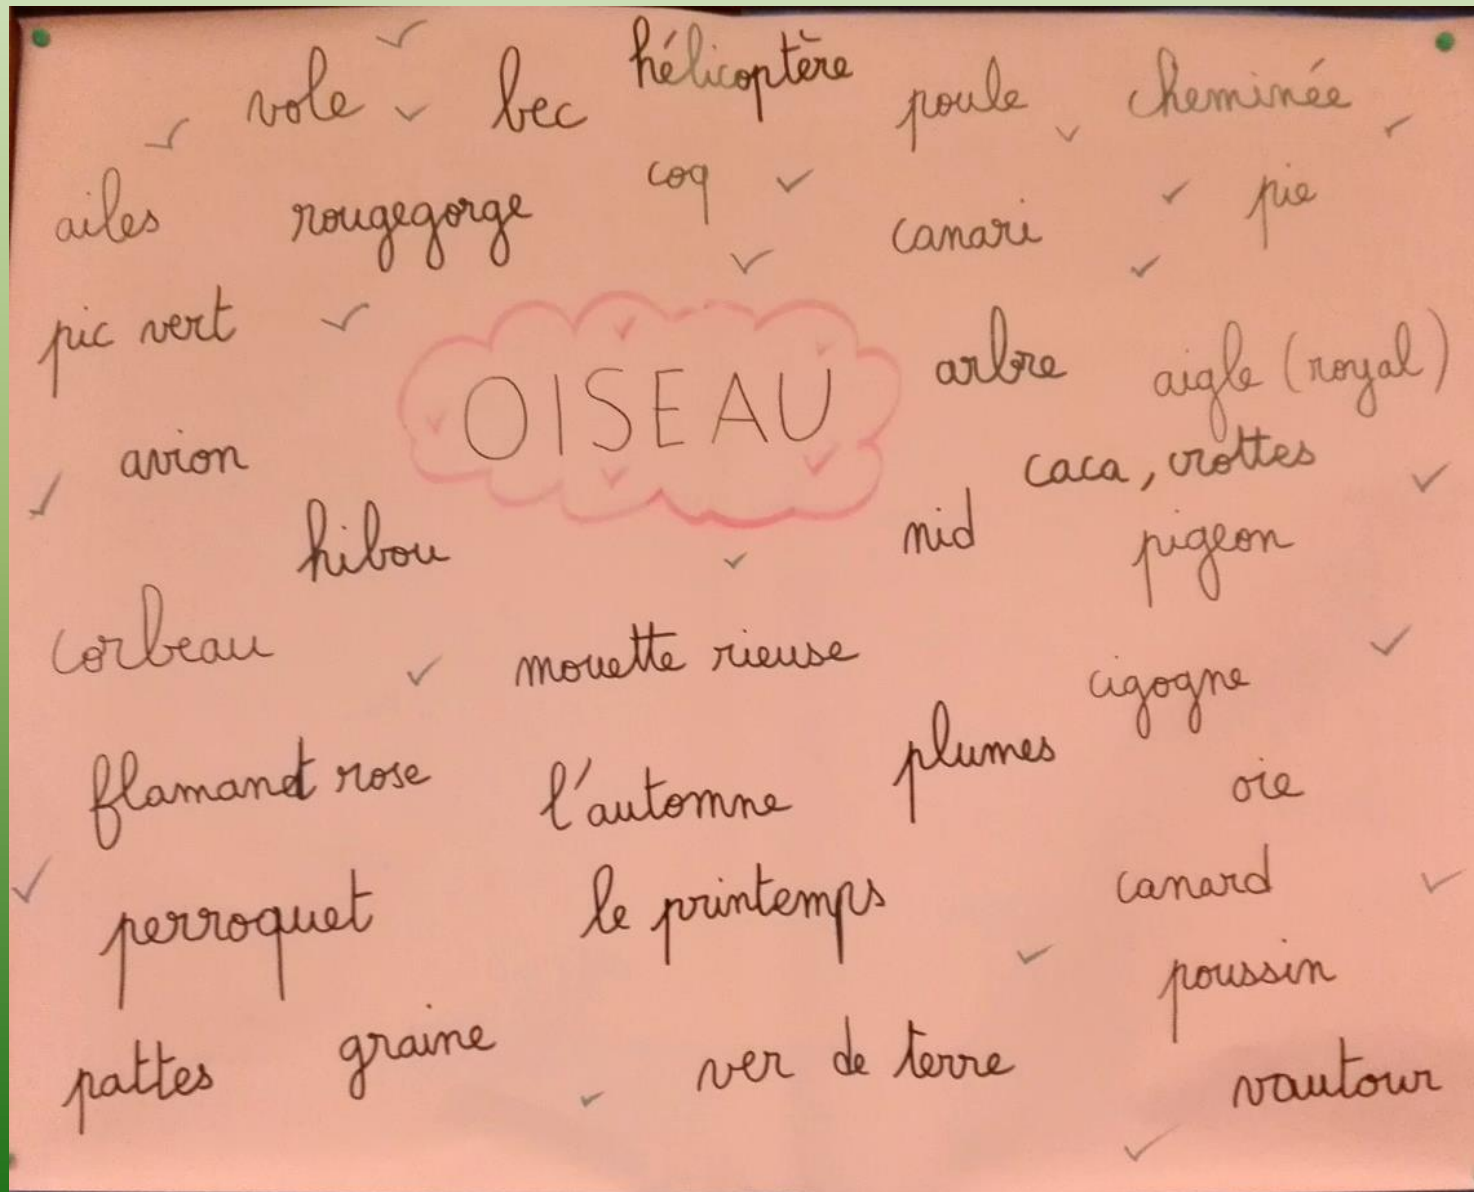 hélicoptère
vole bec poule cheminée
coq
ailes rougegorge canari pie
pic vert
OISEAU
arbre aigle (royal)
avion caca, crottes
hibou nid pigeon
corbeau mouette rieuse cigogne
flamant rose l'automne plumes oie
perroquet le printemps canard
poussin
pattes graine ver de terre vautour